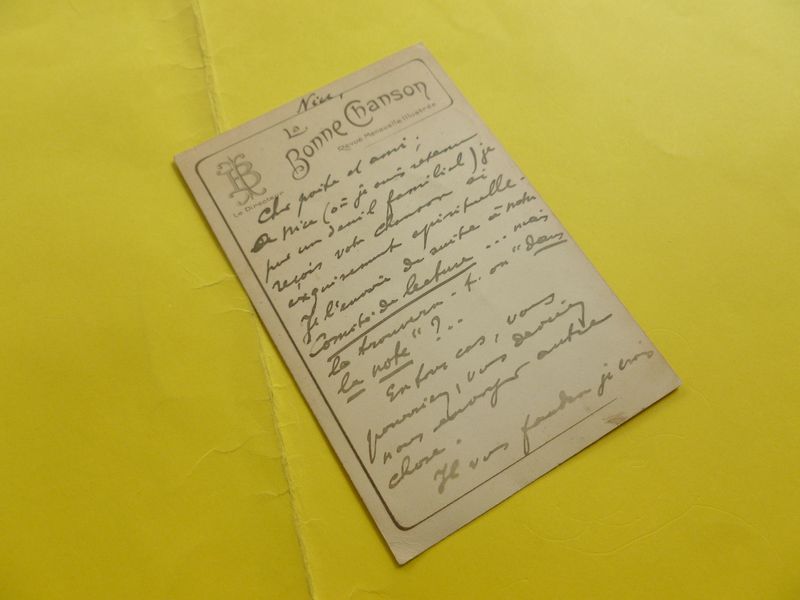 Nice,
La
Bonne Chanson
Revue Mensuelle Illustrée
LB
Le Directeur
Cher poète et ami,
De Nice (où je suis retenu
par un deuil familial) je
reçois votre chanson si
exquisement spirituelle.
Je l'envoie de suite à notre
Comité de lecture... mais
la trouvera-t-on "dans
la note" ?..
En tous cas, vous
pourriez, vous devriez
nous envoyer autre
chose.
Il vous faudra je crois